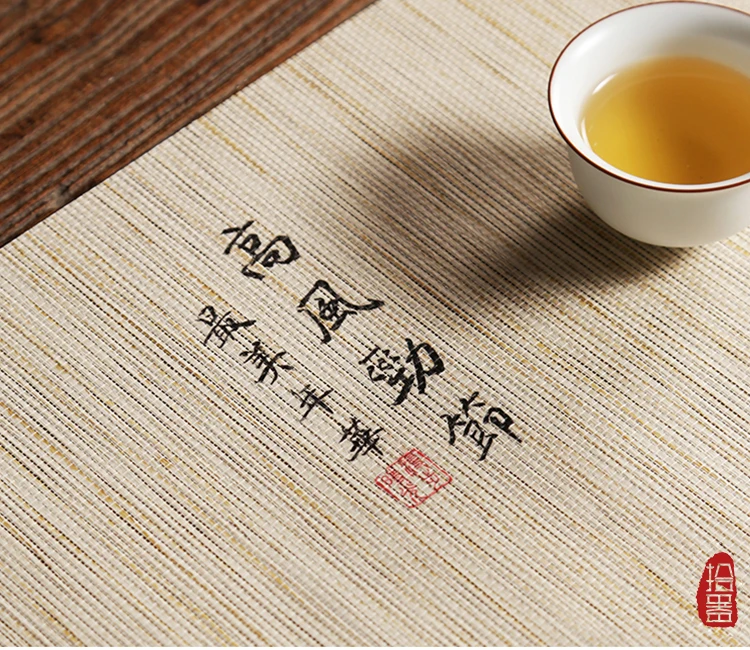 高風勁節
最美年華
拾器